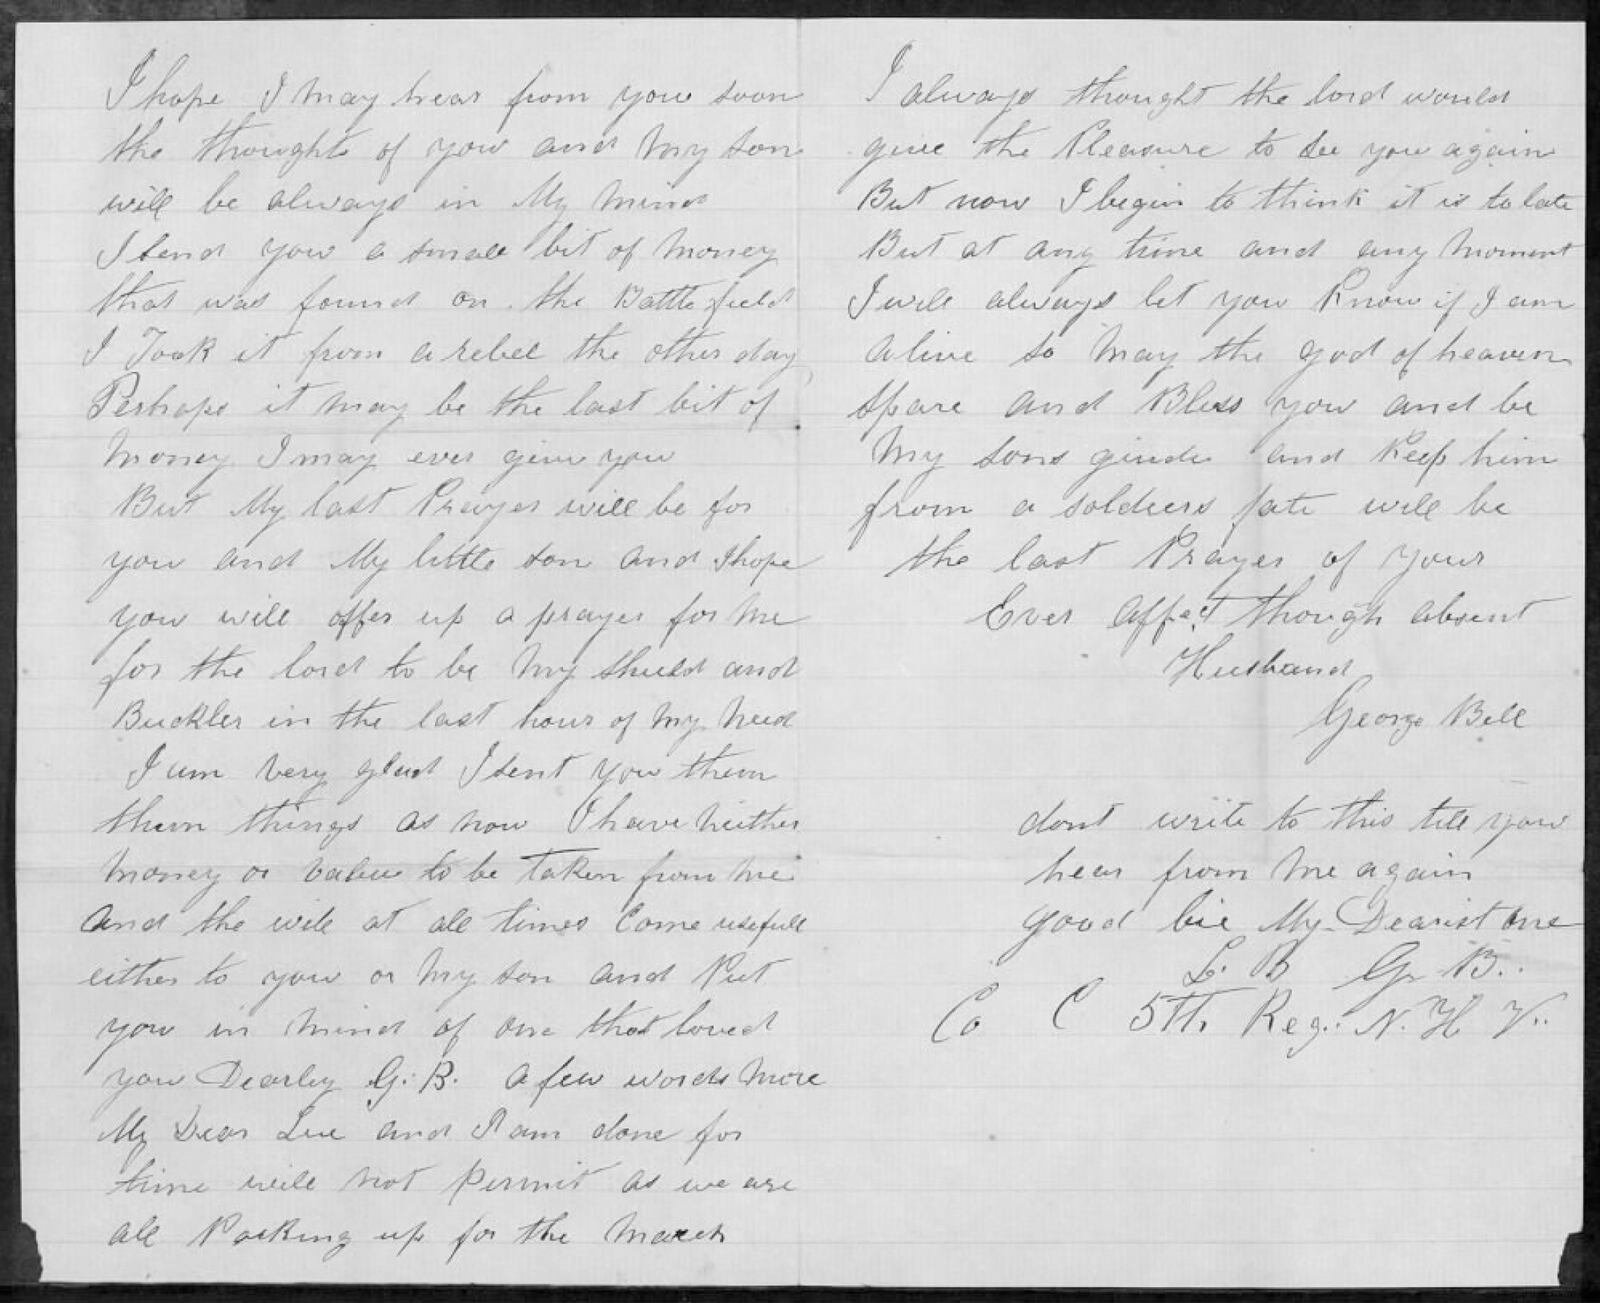 I hope I may hear from you soon
the thoughts of you and my son
will be always in My mind
I send you a small bit of money
that was found on the Battlefield
I Took it from a rebel the other day
Perhaps it may be the last bit of
money I may ever give you
But My last Prayer will be for
you and My little son and I hope
you will offer up a prayer for me
for the lord to be my shield and
Buckler in the last hour of my need
I am very glad I sent you them
them things as now I have neither
money or value to be taken from me
and the will at all times Come usefull
either to you or my son and Put
you in mind of one that loved
you Dearley G. B. a few words more
My Dear Lue and I am done for
time will not permit as we are
all Packing up for the march
I always thought the lord would
give the Pleasure to see you again
But now I begin to think it is to late
But at any time and any moment
I will always let you Know if I am
alive so may the god of heaven
spare and Bless you and be
my sons giude and Keep him
from a soldiers fate will be
the last Prayer of your
Ever affect though absent
Husband
George Bell
dont write to this till you
hear from me again
good bie My Dearist one
L. B G. B..
Co C 5Th Reg.. N. H V..